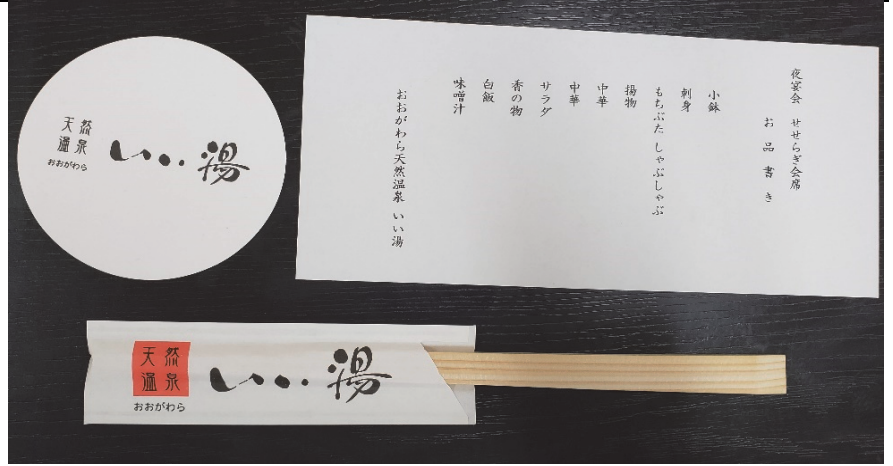 天然
温泉
おおがわら
いい湯
夜宴会 せせらぎ会席
お品書き
小鉢
刺身
もちぶた しゃぶしゃぶ
揚物
中華
中華
サラダ
香の物
白飯
味噌汁
おおがわら天然温泉 いい湯
天然
温泉
おおがわら
いい湯